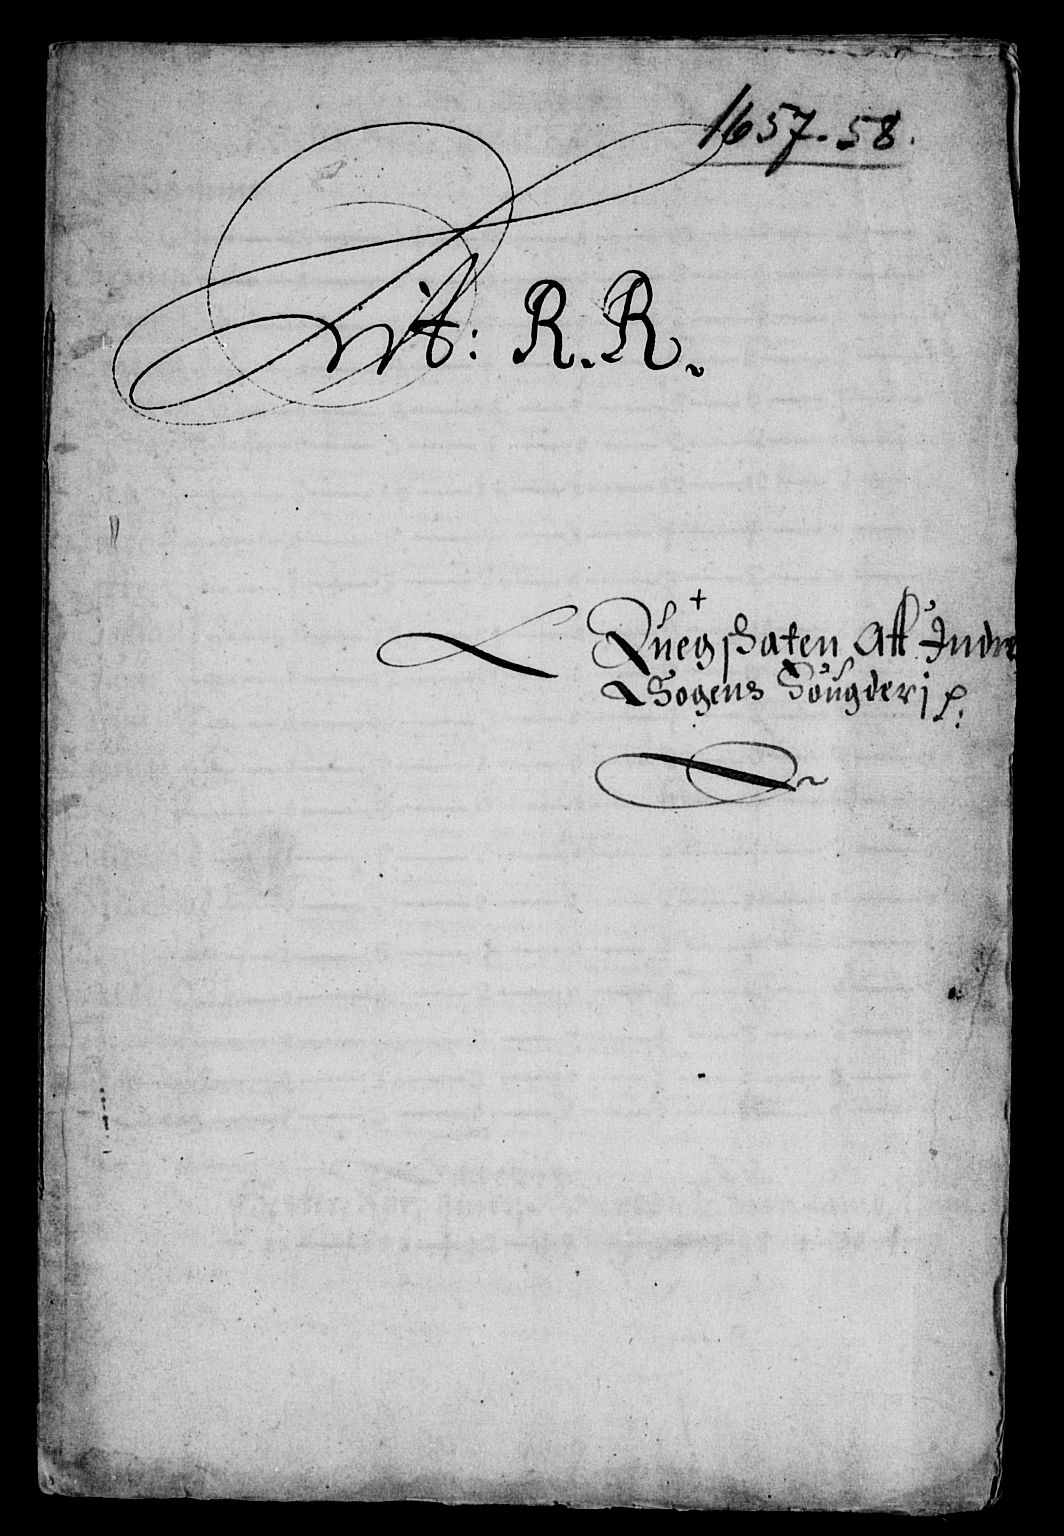 1657-58.
Lit: R. R.
Quegschaten Aff Indre
Sogens Fougderi p: